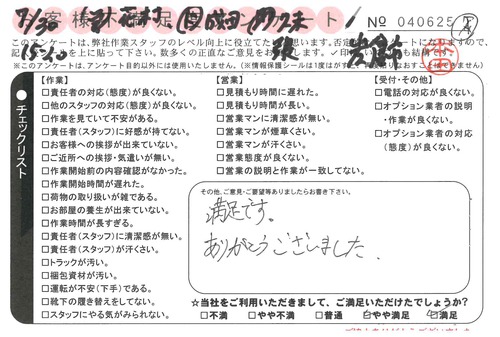 7/30
15:00
№ 040625
このアンケートは、弊社作業スタッフのレベル向上に役立てた
※このアンケートは、アンケート目的以外には使用いたしません。（※情報保護シールは1度はがすと、
チェックリスト
【作業】
□責任者の対応（態度）が良くない。
□他のスタッフの対応（態度）が良くない。
□作業を見ていて不安がある。
□責任者（スタッフ）に好感が持てない。
□お客様への挨拶が出来ていない。
□ご近所への挨拶・気遣いが無い。
□作業開始前の内容確認がなかった。
□作業開始時間が遅れた。
□荷物の取り扱いが雑である。
□お部屋の養生が出来ていない。
□作業時間が長すぎる。
□責任者（スタッフ）に清潔感が無い。
□責任者（スタッフ）が汗くさい。
□トラックが汚い。
□梱包資材が汚い。
□運転が不安（下手）である。
□靴下の履き替えをしてない。
□スタッフにやる気がみられない。
【営業】
□見積もり時間に遅れた。
□見積もり時間が長い。
□営業マンに清潔感が無い。
□営業マンが煙草くさい。
□営業マンが汗くさい。
□営業態度が良くない。
□営業の説明と作業が一致してない。
【受付・その他】
□電話の対応が良くない。
□オプション業者の説明
・作業が良くない。
□オプション業者の対応
（態度）が良くない。
その他、ご意見・ご要望等ありましたらお書き下さい。
満足です。
ありがとうございました。
☆当社をご利用いただきまして、ご満足いただけたでしょうか？
□不満 □やや不満 □普通 □やや満足 □満足